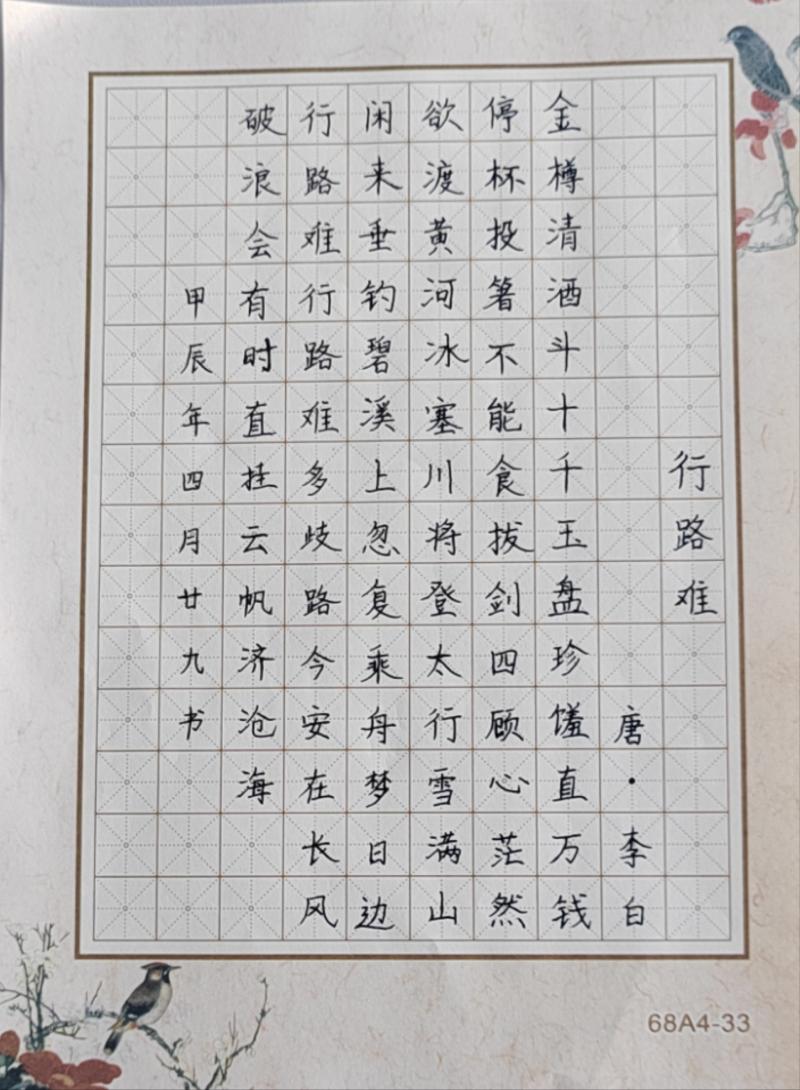 行路难
唐·李白
金樽清酒斗十千玉盘珍馐直万钱
停杯投箸不能食拔剑四顾心茫然
欲渡黄河冰塞川将登太行雪满山
闲来垂钓碧溪上忽复乘舟梦日边
行路难行路难多歧路今安在长风
破浪会有时直挂云帆济沧海
甲辰年四月廿九书
68A4-33